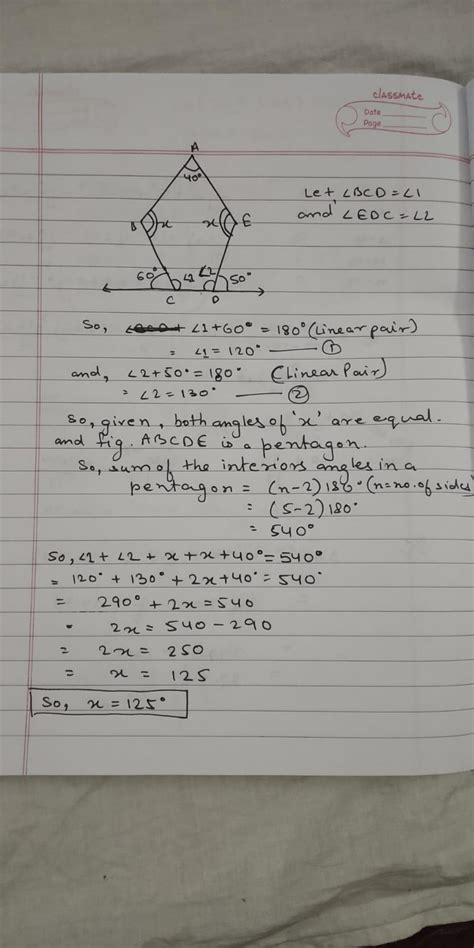 classmate
Date
Page
A
40°
Let ∠BCD = ∠1
and ∠EDC = ∠2
B x x E
60° ∠1 ∠2 50°
C D
So, ∠1+60° = 180° (Linear pair)
= ∠1 = 120° ——— ①
and, ∠2+50° = 180° (Linear Pair)
= ∠2 = 130° ——— ②
So, given, both angles of 'x' are equal.
and fig. ABCDE is a pentagon.
So, sum of the interiors angles in a
pentagon = (n-2)180° (n=no. of sides
= (5-2)180°
= 540°
So, ∠1 + ∠2 + x + x + 40° = 540°
= 120° + 130° + 2x + 40° = 540°
= 290° + 2x = 540
• 2x = 540 - 290
= 2x = 250
= x = 125
So, x = 125°